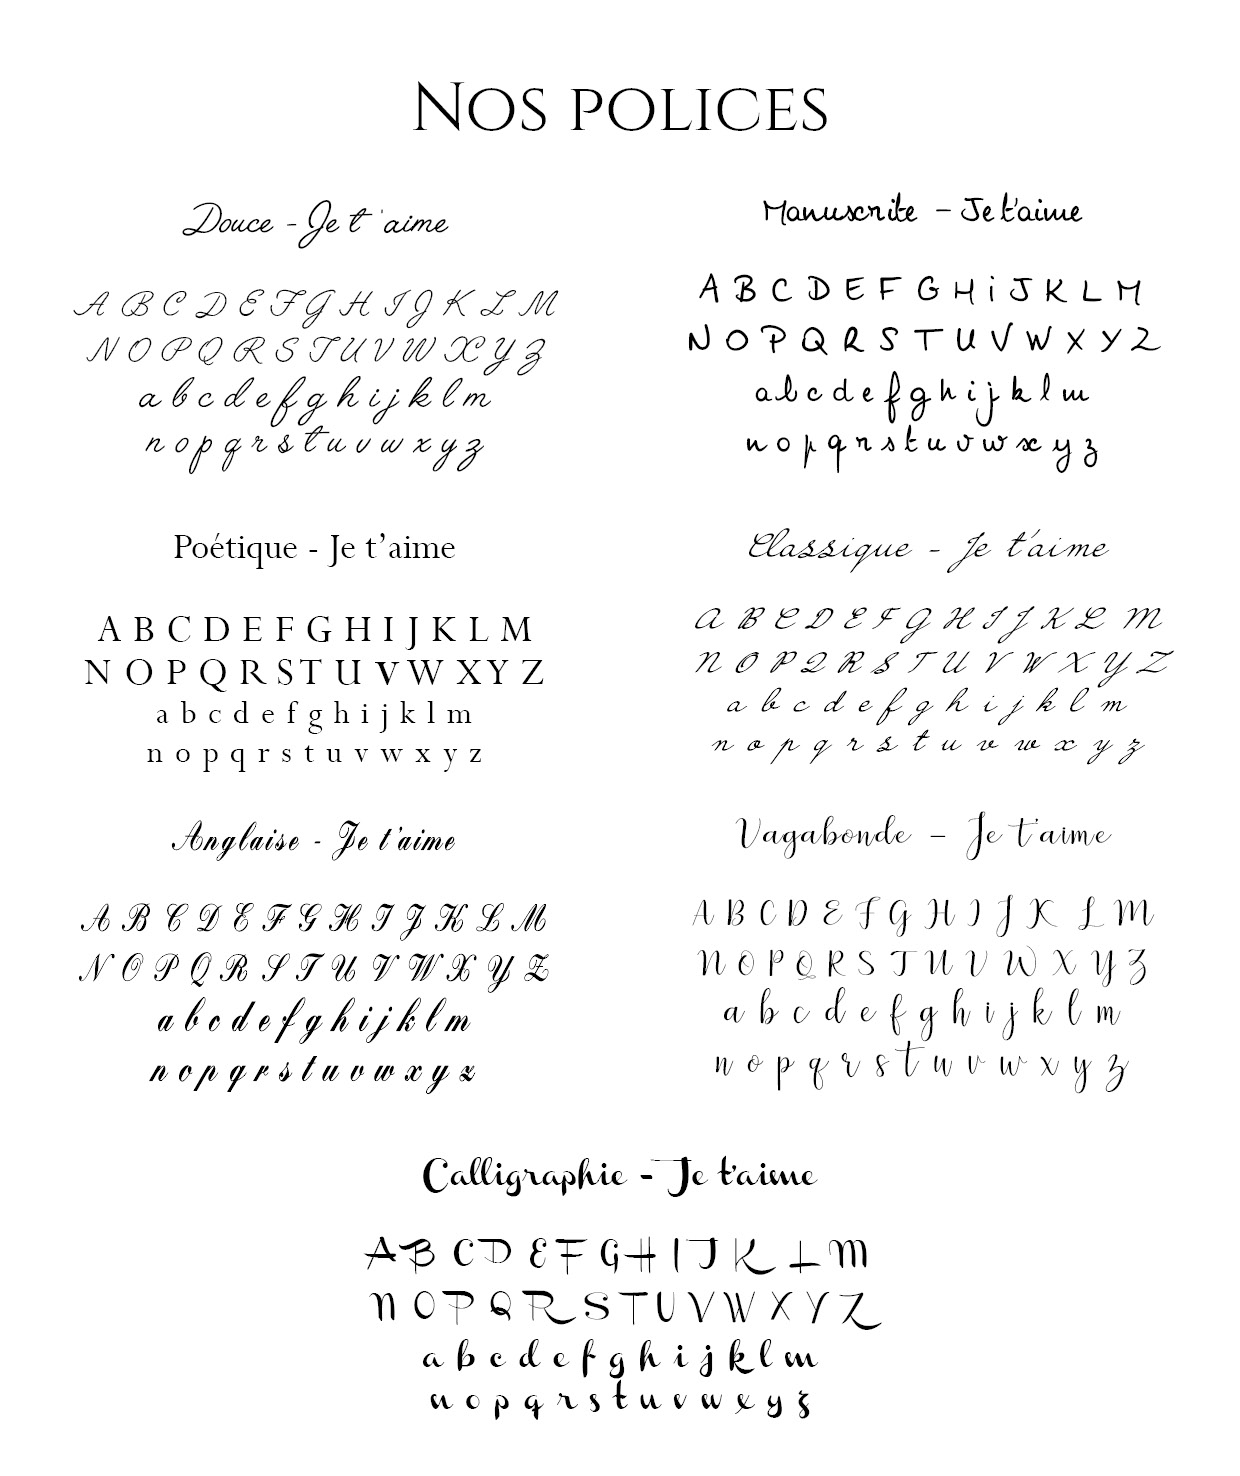 Nos polices
Douce - Je t 'aime
A B C D E F G H I J K L M
N O P Q R S T U V W X Y Z
a b c d e f g h i j k l m
n o p q r s t u v w x y z
Manuscrite - Je t'aime
A B C D E F G H i J K L M
N O P Q R S T U V W X Y Z
a b c d e f g h i j k l m
n o p q r s t u v w x y z
Poétique - Je t’aime
A B C D E F G H I J K L M
N O P Q R S T U V W X Y Z
a b c d e f g h i j k l m
n o p q r s t u v w x y z
Classique - Je t'aime
A B C D E F G H I J K L M
N O P Q R S T U V W X Y Z
a b c d e f g h i j k l m
n o p q r s t u v w x y z
Anglaise - Je t'aime
A B C D E F G H I J K L M
N O P Q R S T U V W X Y Z
a b c d e f g h i j k l m
n o p q r s t u v w x y z
Vagabonde - Je t'aime
A B C D E F G H I J K L M
N O P Q R S T U V W X Y Z
a b c d e f g h i j k l m
n o p q r s t u v w x y z
Calligraphie - Je t'aime
A B C D E F G H I J K L M
N O P Q R S T U V W X Y Z
a b c d e f g h i j k l m
n o p q r s t u v w x y z